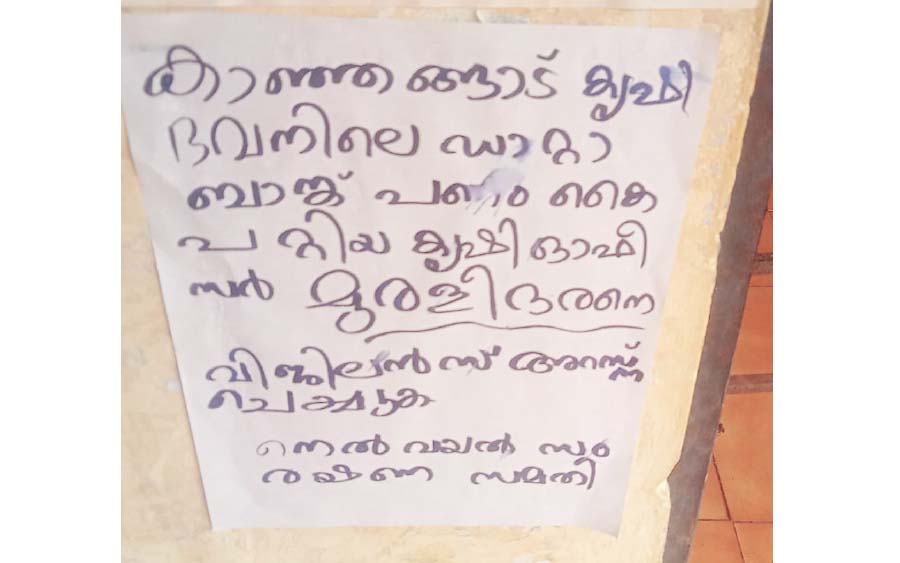 കാഞ്ഞങ്ങാട് കൃഷി
ഭവനിലെ ഡാറ്റാ
ബാങ്ക് പണം കൈ
പറ്റിയ കൃഷി ഓഫീ
സർ മുരളിദരനെ
വിജിലൻസ് അറസ്റ്റ്
ചെയ്യുക
നെൽ വയൽ സം
രക്ഷണ സമതി